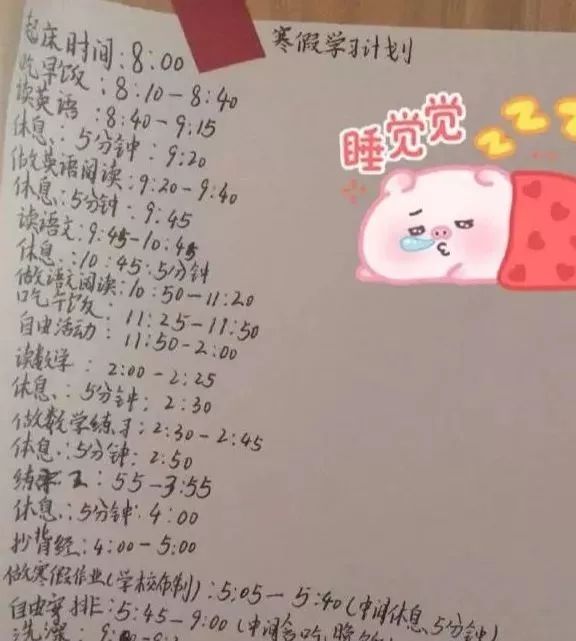 寒假学习计划
起床时间:8:00
吃早饭:8:10-8:40
读英语:8:40-9:15
休息:5分钟:9:20
做英语阅读:9:20-9:40
休息:5分钟:9:45
读语文:9:45-10:45
休息:10:45:5分钟
做语文阅读:10:50-11:20
吃午饭:11:25-11:50
自由活动:11:50-2:00
读数学:2:00-2:25
休息:5分钟:2:30
做数学练习:2:30-2:45
休息:5分钟:2:50
练 55-3:55
休息:5分钟:4:00
抄背经:4:00-5:00
做寒假作业(学校布制):5:05-5:40(中间休息5分钟)
自由安排:5:45-9:00(中间会吃晚
洗澡:
睡觉觉
ZZZ